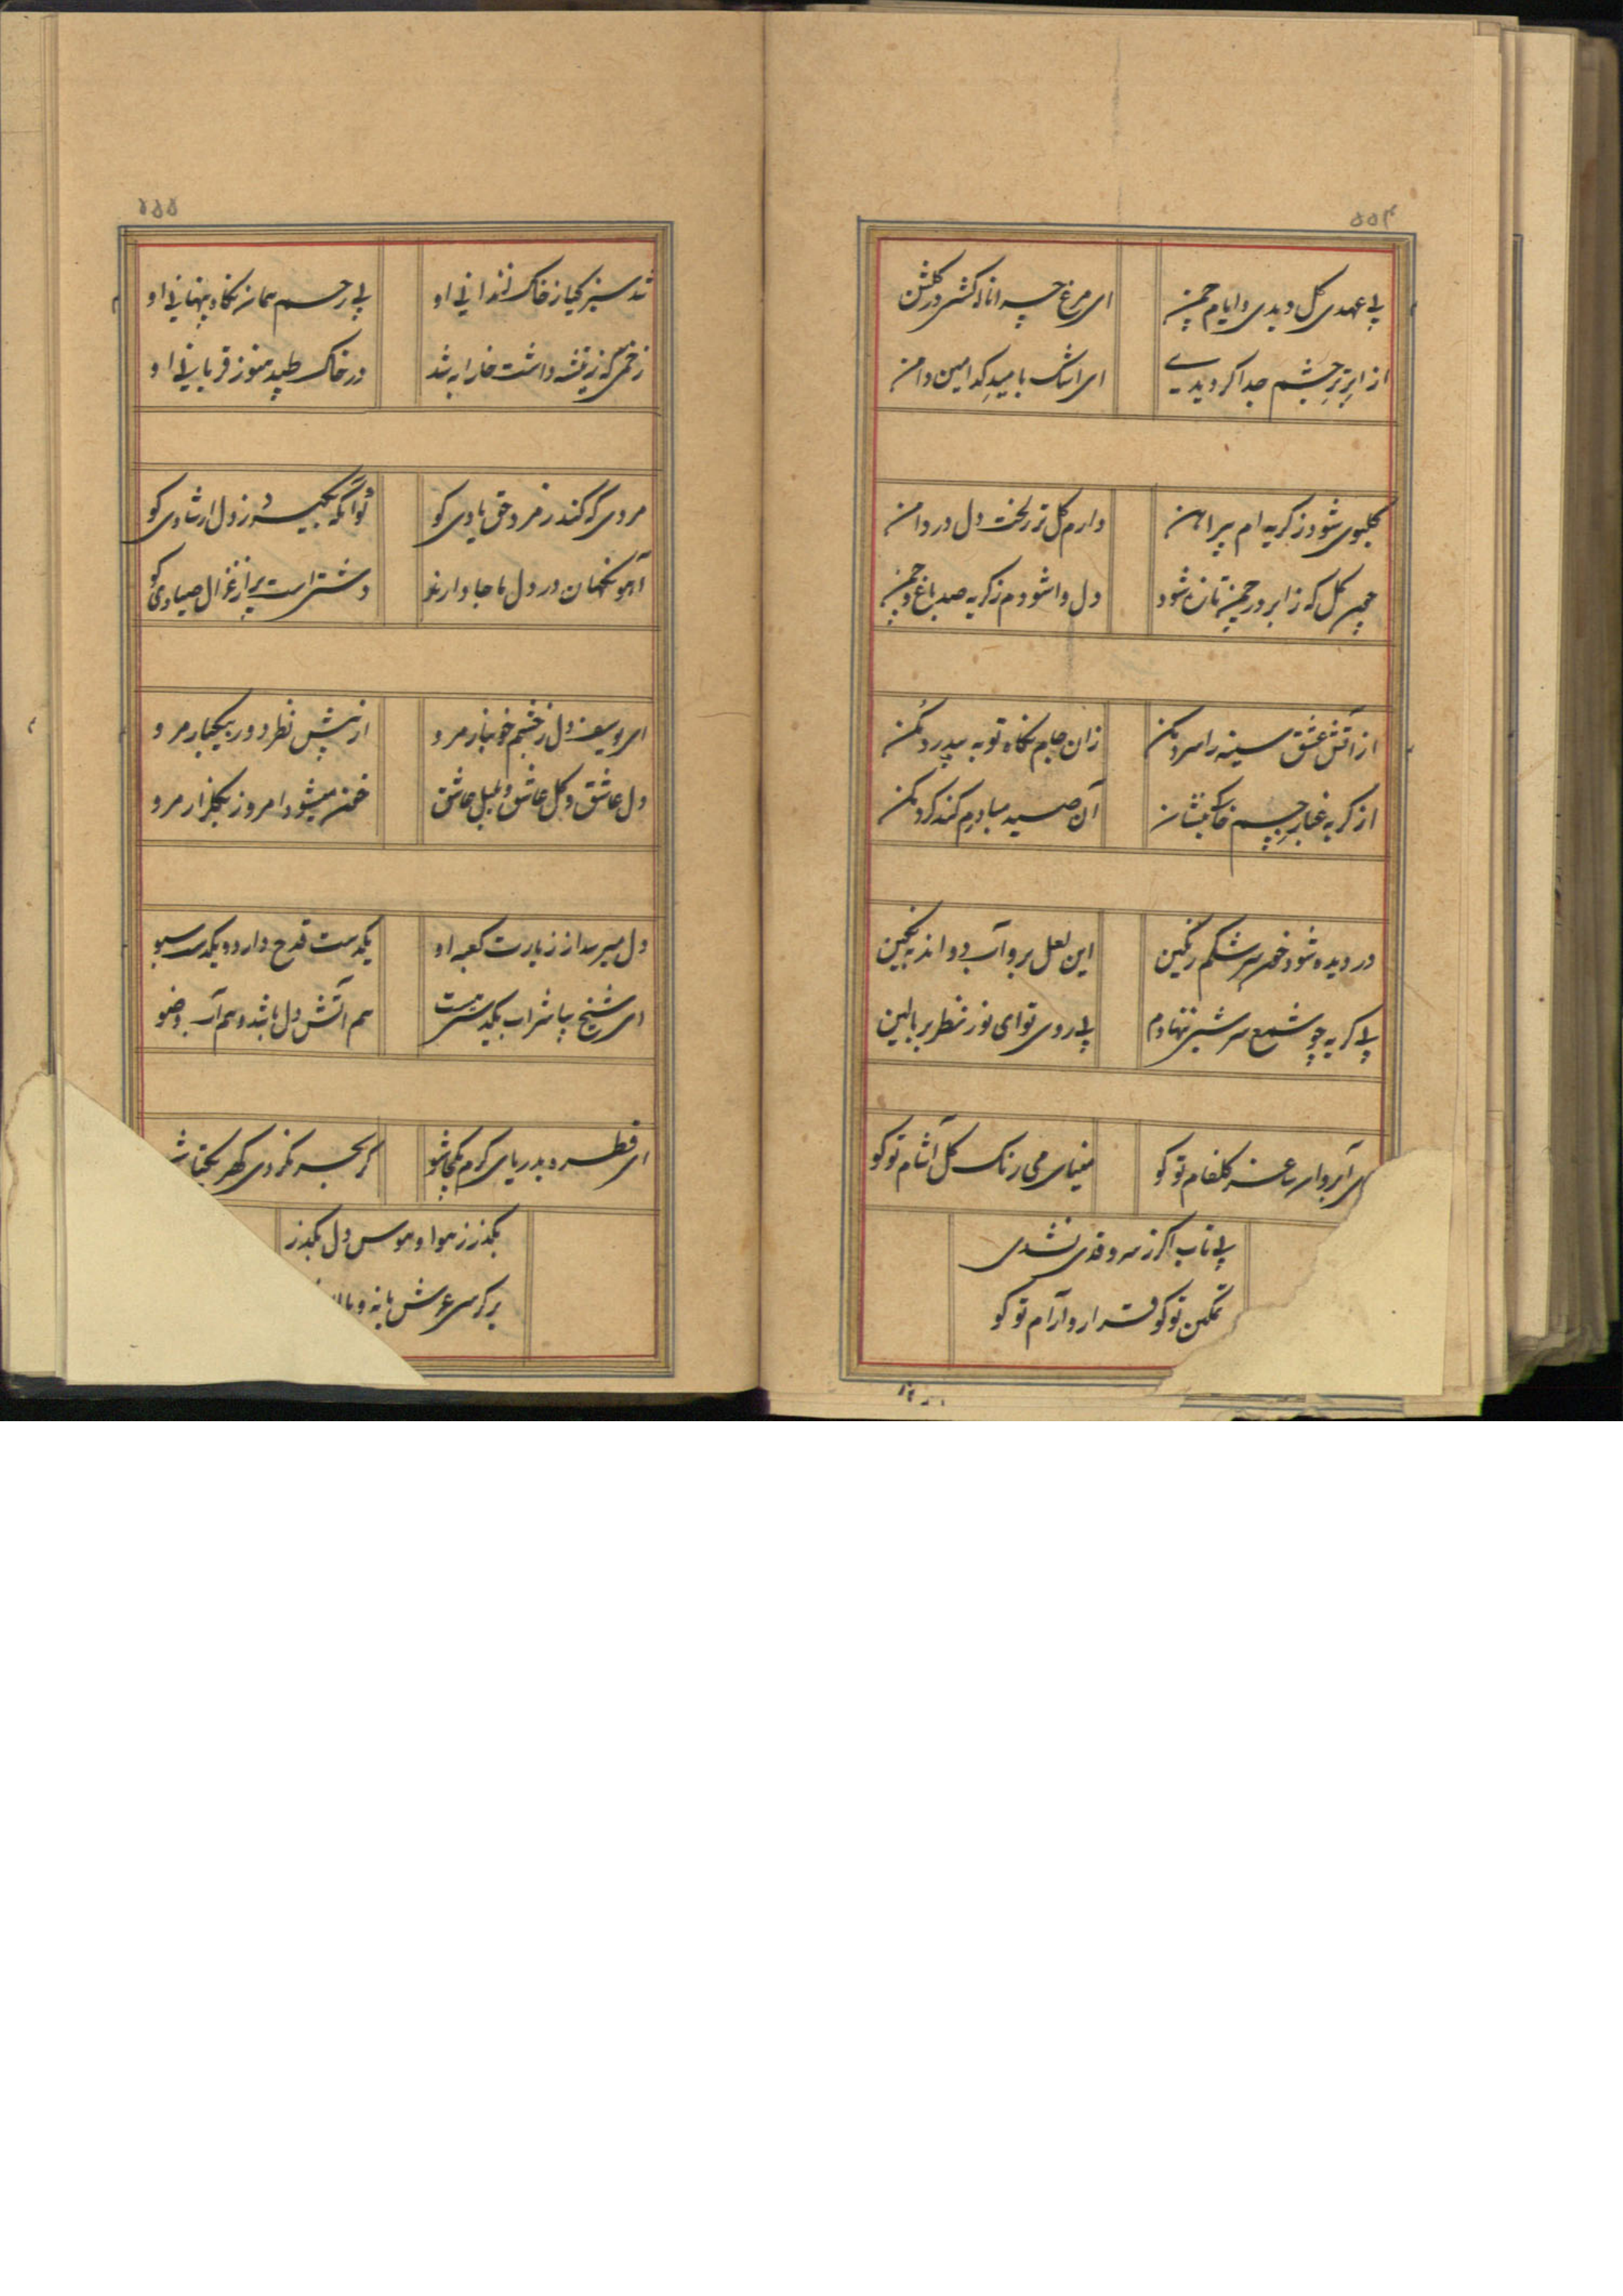 ۵۵۴
بی عهدی گل دیدی و ایام چمن
ای مرغ چرا ناله کشی در گلشن
از ابر تر چشم جدا کردیدی
ای اشک بامید کدامین دامن
گلبوی شود ز گریه ام پیراهن
دارم گل تر لخت دل در دامن
چون گل که ز ابر در چمن تازه شود
دل واشودم ز گریه صد باغ و چمن
از آتش عشق سینه را سرد مکن
زان جام نگاه توبه بیدرد مکن
از گریه غبار جسم خاکی بنشان
آن صید مبادرم کند گرد مکن
در دیده شود خون سرشکم رنگین
این لعل برو آب دواند به نگین
بی گریه چو شمع سر شبی ننهادم
بی روی تو ای نور نظر بر بالین
آبروا ساغر گلفام تو کو
مینای می رنگ گل آشام تو کو
بی تاب اگر ز سرو قدی نشدی
تمکین تو کو قرار و آرام تو کو
۵۵۵
شد سبز گیا ز خاک او
بی رحم همان نگاه پنهانی او
زخمی که ز تیشه داشت خارا به شد
در خاک طپد هنوز قربانی او
مردی که کند ز مرد حق یادی کو
تو آنکه بگیرد ز دل ارشادی کو
آهو نگهان در دل ما جا دارند
دشتی است پر از غزال صیادی کو
ای یوسف دل ز چشم خونبار مرو
از پیش نظر دور بیکبار مرو
دل عاشق و گل عاشق و بلبل عاشق
خون میشود امروز بگلزار مرو
دل میرسد از زیارت کعبه او
یکدست قدح دارد و یکدست سبو
ای شیخ بیا شراب یکدست منست
هم آتش دل باشد و هم آب وضو
ای قطره بدریای کرم یکجا شو
گر بحر نگردی گهر یکتا
بگذر ز هوا و هوس دل بگذر
بر کرسی عرش پا نه و